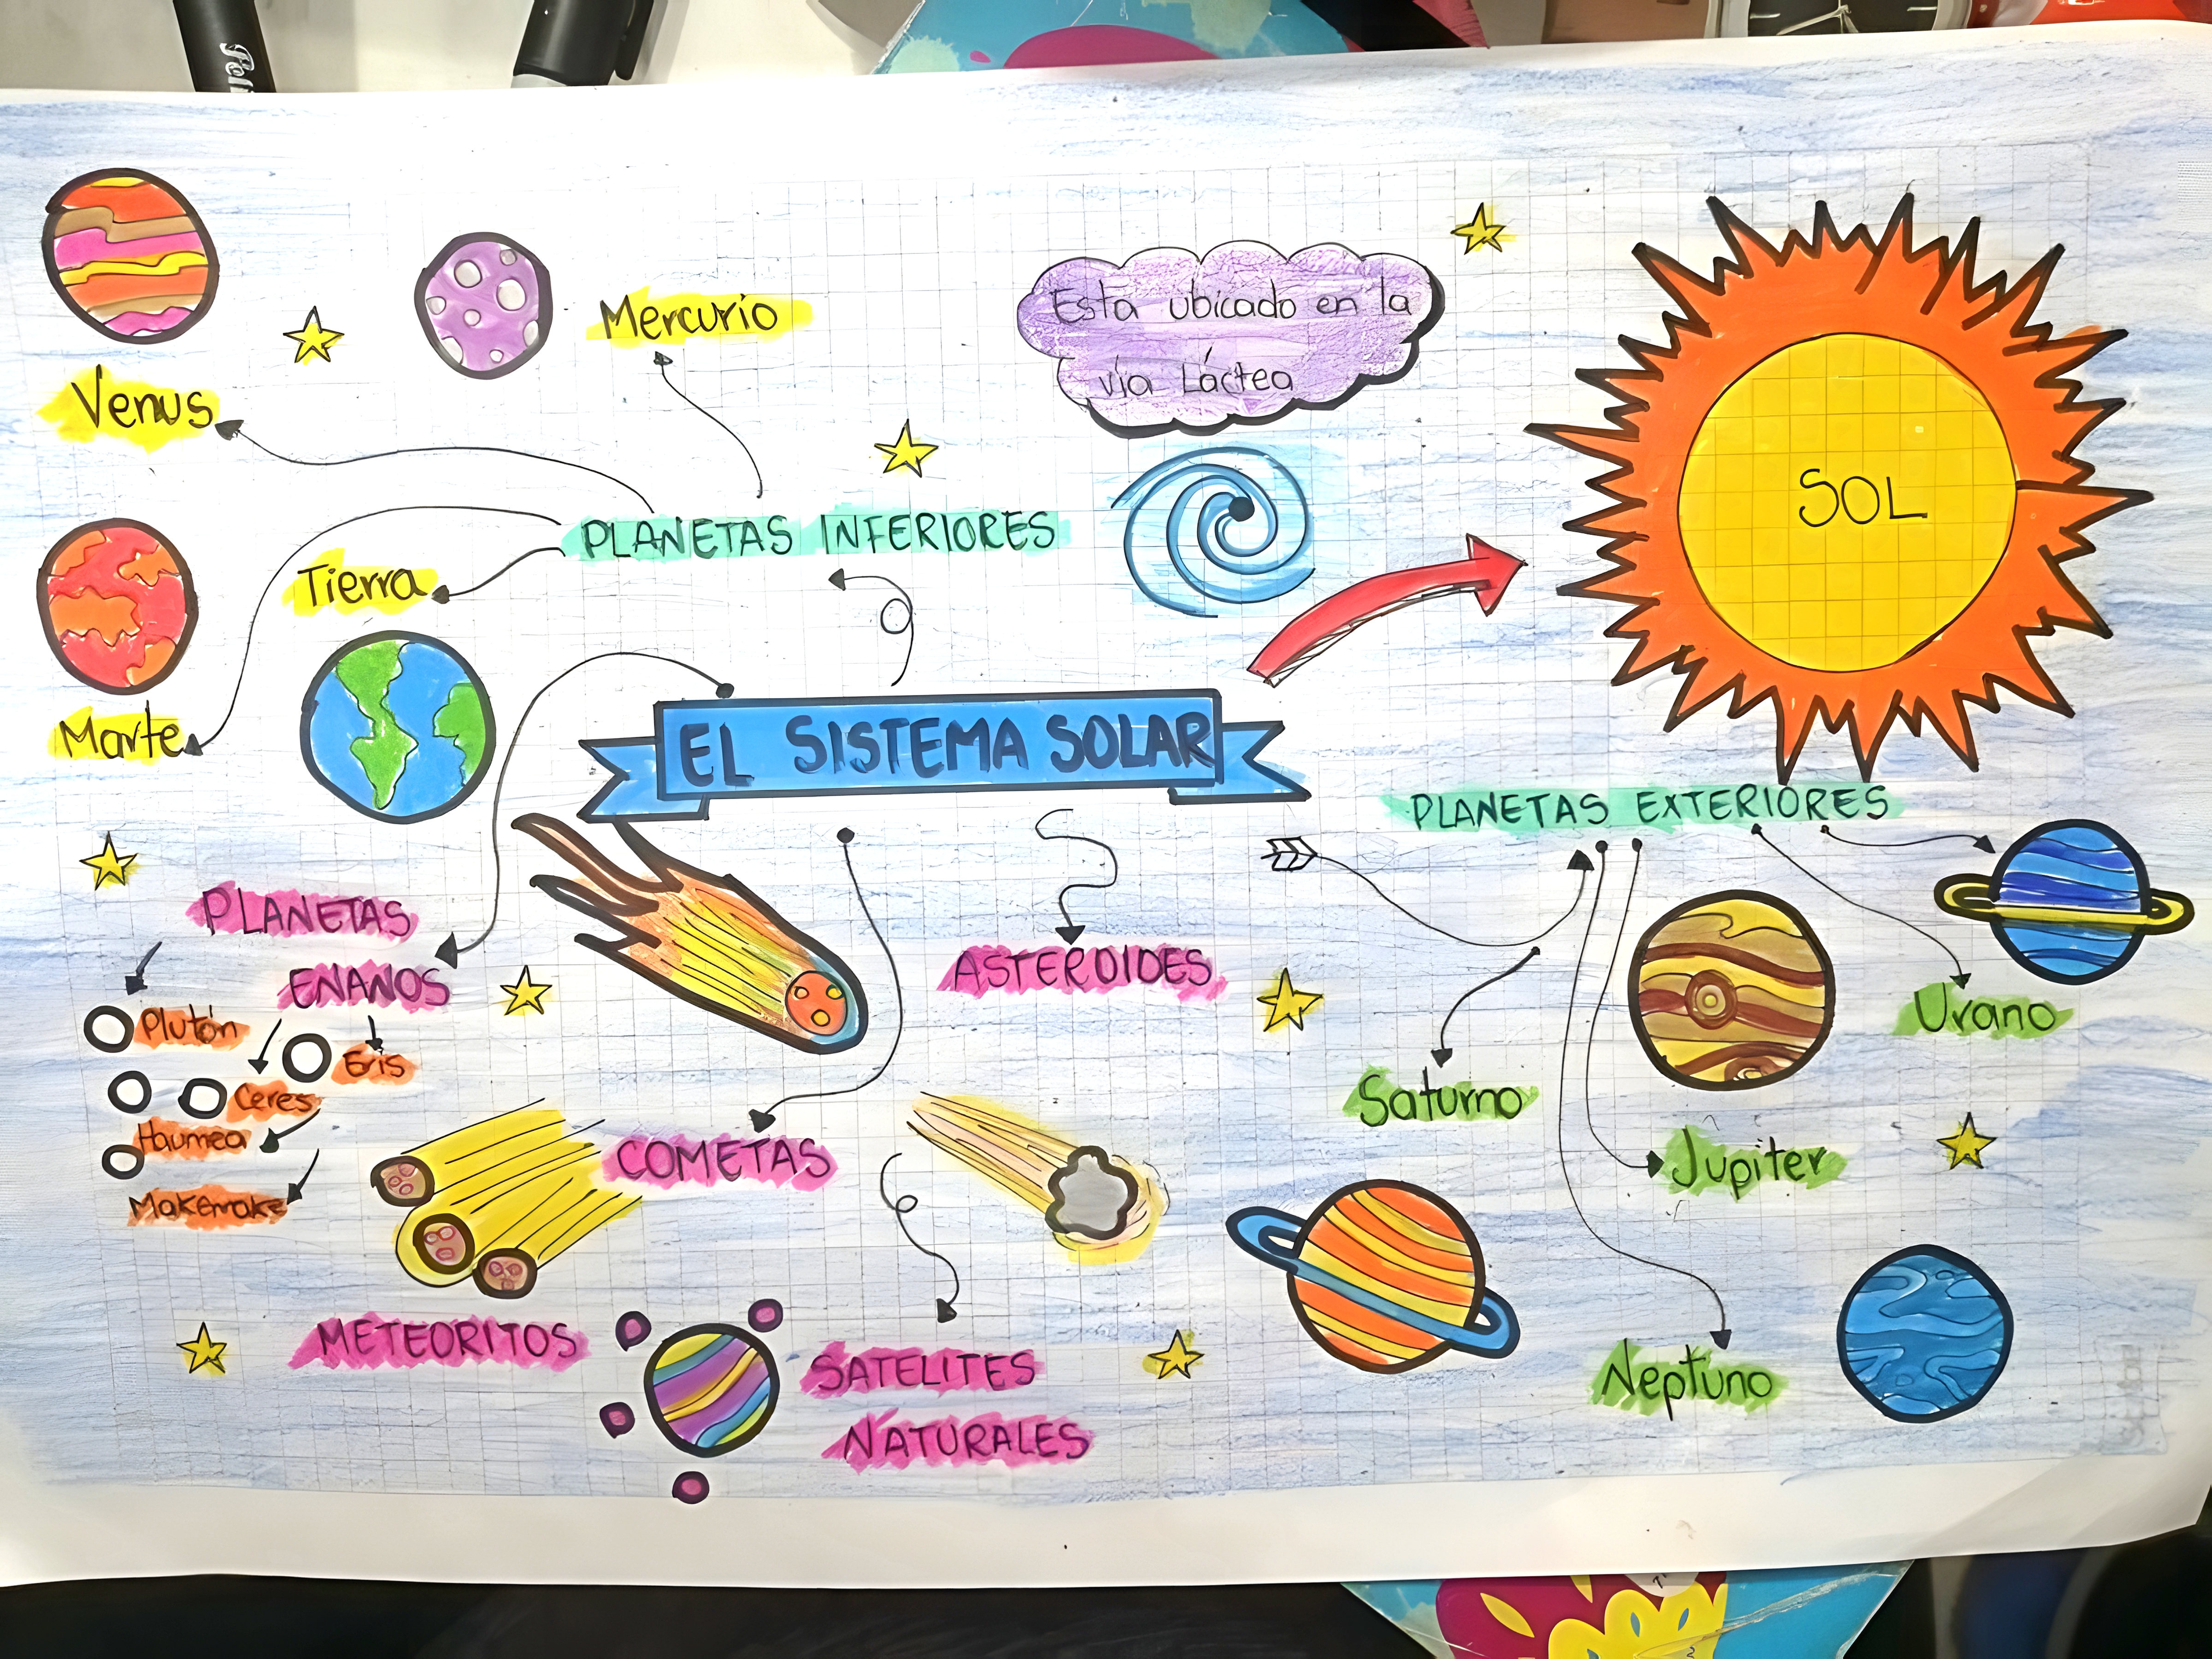 Mercurio
Esta ubicado en la
vía Láctea
Venus
SOL
PLANETAS INFERIORES
Tierra
Marte
EL SISTEMA SOLAR
PLANETAS EXTERIORES
PLANETAS
ENANOS
ASTEROIDES
Plutón
Eris
Ceres
Haumea
Makemake
Urano
Saturno
COMETAS
Jupiter
METEORITOS
SATELITES
NATURALES
Neptuno